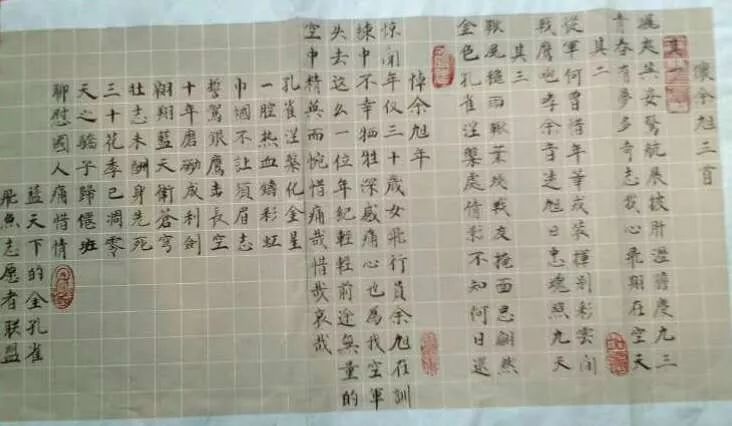 懷余旭三首
其一
飒爽英姿驚航展披肝瀝膽慶九三
青春有夢多奇志我心飛翔在空天
其二
從軍何曾惜年華戎裝揮别彩雲間
戰鷹也孝余音遠旭日忠魂照九天
其三
秋風雨秋葉残戰友掩面思翩然
金色孔雀涅槃處倩影不知何日還
悼余旭年
惊闻年仅三十歲女飛行員余旭在訓
練中不幸牺牲深感痛心也為我空軍
失去这么一位年紀輕輕前途無量的
空中精英而惋惜痛哉惜哉哀哉
孔雀涅槃化金星
一腔热血鑄彩虹
巾帼不让须眉志
誓駕銀鷹击長空
十年磨砺成利劍
翱翔藍天衛蒼穹
壯志未酬身先死
三十花季已凋零
天之驕子歸僊班
聊慰國人痛惜情
藍天下的金孔雀
飛魚志愿者联盟